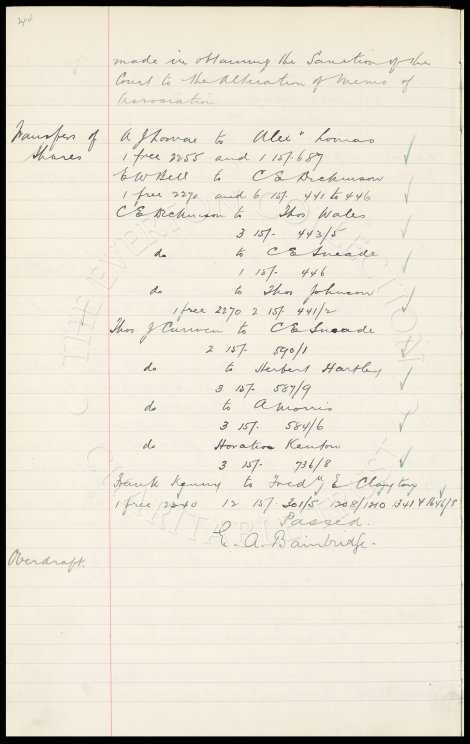 244
made in obtaining the Sanction of the
Court to the Alteration of Memo of
Association
Transfers of Shares
A J Lomax to Alec" Lomas
1 free 2255 and 1 15/- 687
E W Bell to C E Dickinson
1 free 2270 and 6 15/- 441 to 446
C E Dickinson to Thos Wales
3 15/- 443/5
do to C E Sneade
1 15/- 446
do to Thos Johnson
1 free 2270 2 15/- 441/2
Thos J Curwen to C E Sneade
2 15/- 590/1
do to Herbert Hartley
3 15/- 587/9
do to A Morris
3 15/- 584/6
do Horatio Kenton
3 15/- 736/8
Frank Kenny to Fredk E Clayton
1 free 2240 12 15/- 301/5 1208/1210 1341 & 1646/8
Passed.
E. A. Bainbridge.
Overdraft.
THE EVERTON COLLECTION CHARITABLE TRUST